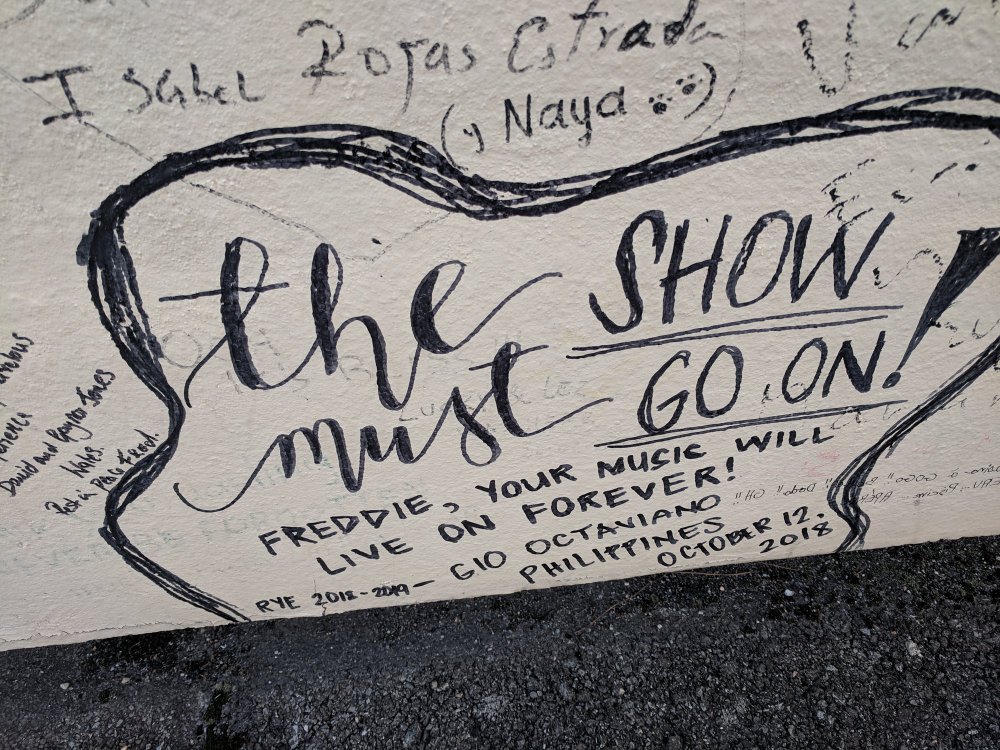 Isabel Rojas Estrada
(y Naya )
the SHOW
must GO ON!
FREDDIE, YOUR MUSIC WILL
LIVE ON FOREVER!
GIO OCTAVIANO
PHILIPPINES
RYE 2018-2019 - OCTOBER 12,
2018
David and
Notes
Rest in Peace